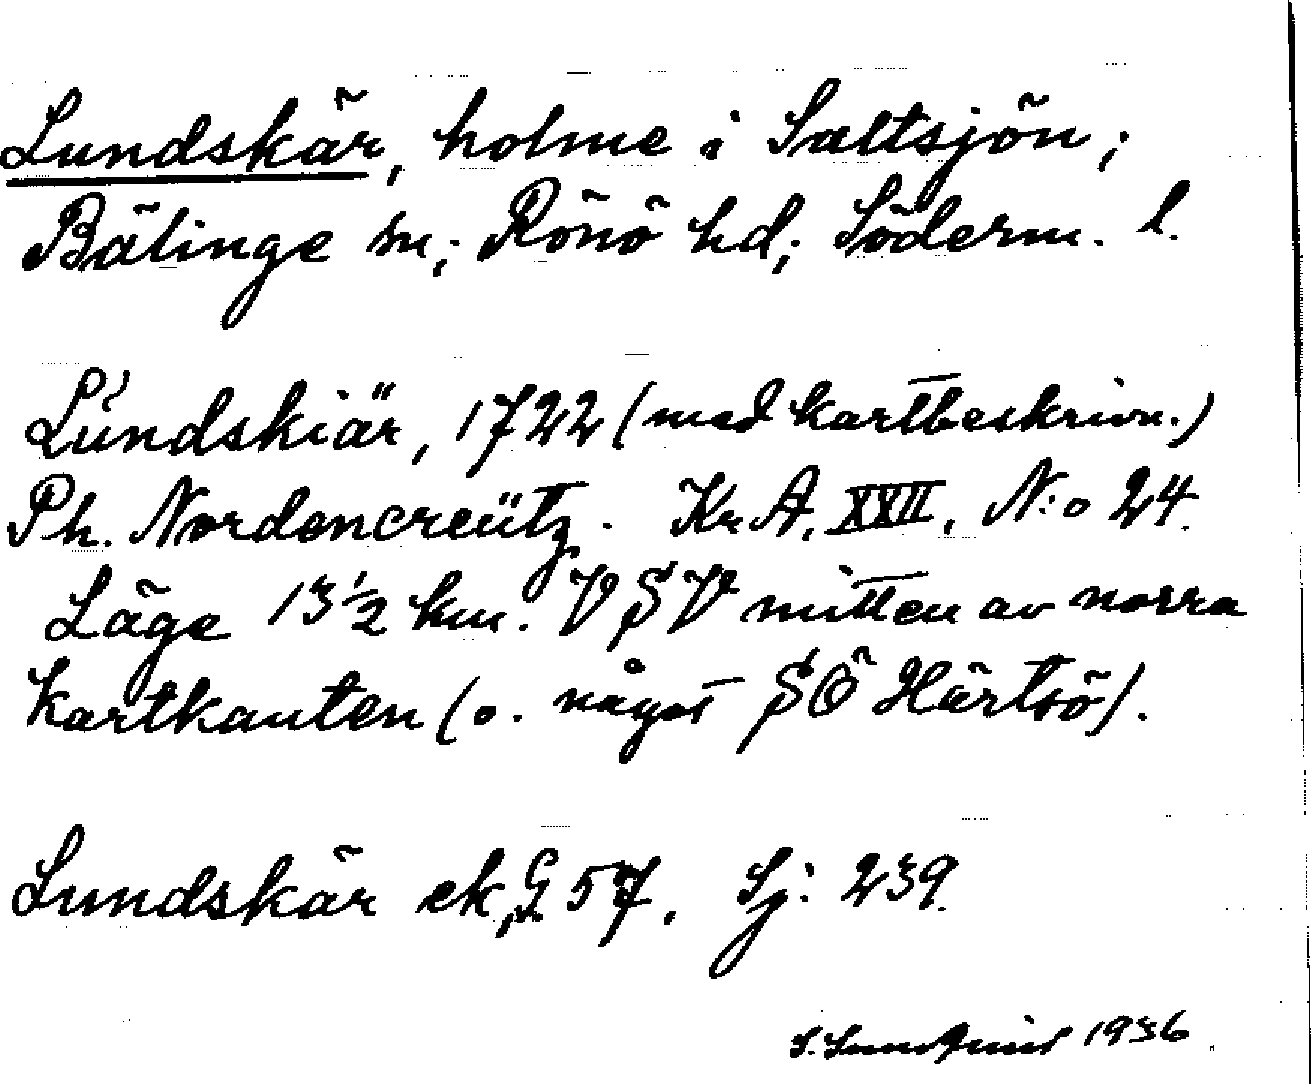 Lundskär, holme i Saltsjön;
Bälinge sn; Rönö hd; Söderm. l.
Lundskiär, 1722 (med kartbeskrivn.)
Ph. Nordencreütz. Kr A. XXII. N:o 24.
Läge 13 1/2 km. VSV mitten av norra
kartkanten (o. något SÖ Härtsö).
Lundskär ek, G 57, Sj: 239.
1936.